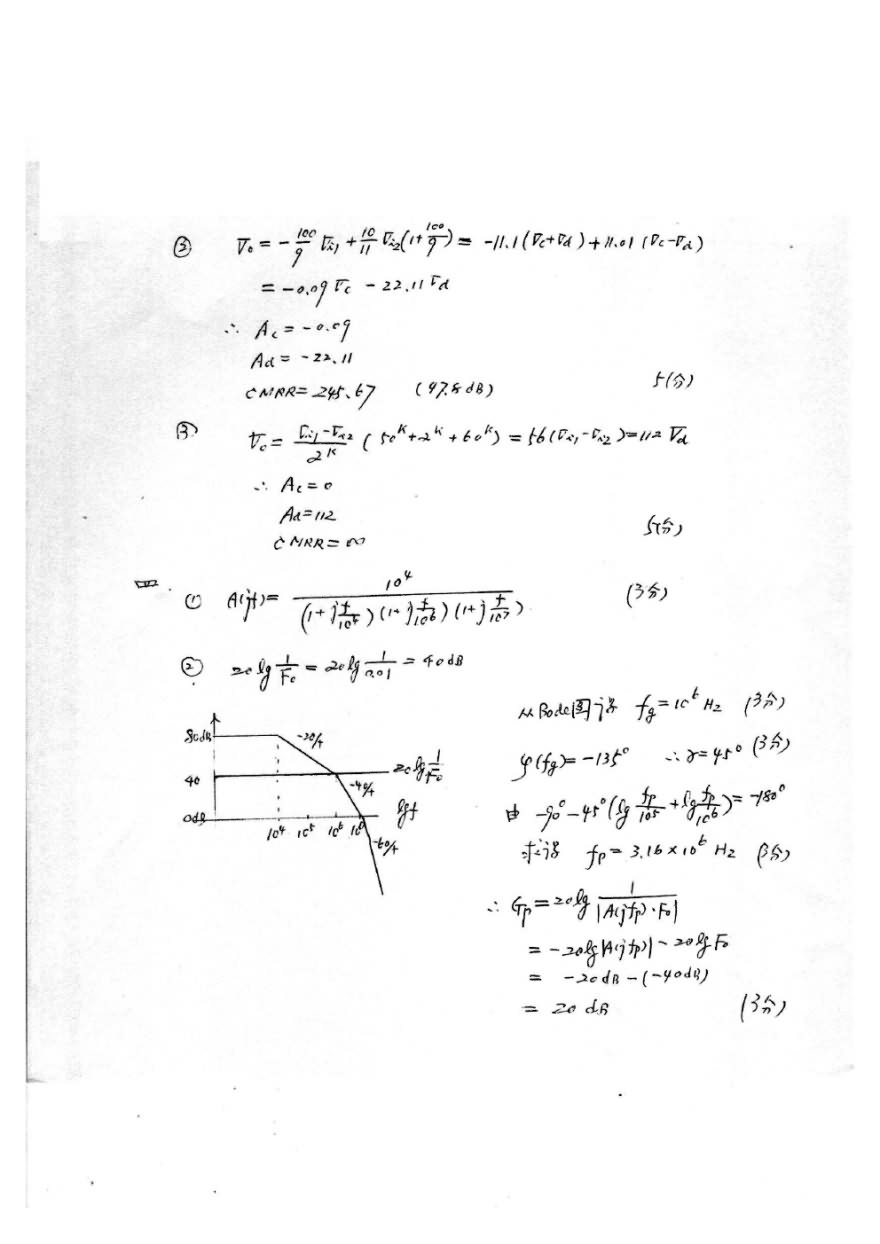 ② V₀ = -100/9 Vi₁ + 10/11 Vi₂(1+100/9) = -11.1(Vc+Vd)+11.01(Vc-Vd)
= -0.09 Vc - 22.11 Vd
∴ Ac = -0.09
Ad = -22.11
CMRR = 245.67 (47.8 dB)
5(分)
③ V₀ = (Vi₁-Vi₂)/2ᴷ (50ᴷ+2ᴷ+60ᴷ) = 56(Vi₁-Vi₂) = 112 Vd
∴ Ac = 0
Ad = 112
CMRR = ∞
5(分)
四.
① A(jf) = 10⁴/((1+j f/10⁴)(1+j f/10⁶)(1+j f/10⁷)) (3分)
② 20lg 1/F₀ = 20lg 1/0.01 = 40dB
80dB
-20/+
40
20lg 1/F₀
-40/+
0dB
lgf
10⁴ 10⁵ 10⁶
-60/+
从Bode图得 fg = 10⁶ Hz (3分)
φ(fg) = -135° ∴ γ = 45° (3分)
由 -90° - 45°(lg fp/10⁵ + lg fp/10⁶) = -180°
求得 fp = 3.16×10⁶ Hz (3分)
∴ Gp = 20lg 1/|A(jfp)·F₀|
= -20lg|A(jfp)| - 20lgF₀
= -20dB - (-40dB)
= 20dB (3分)